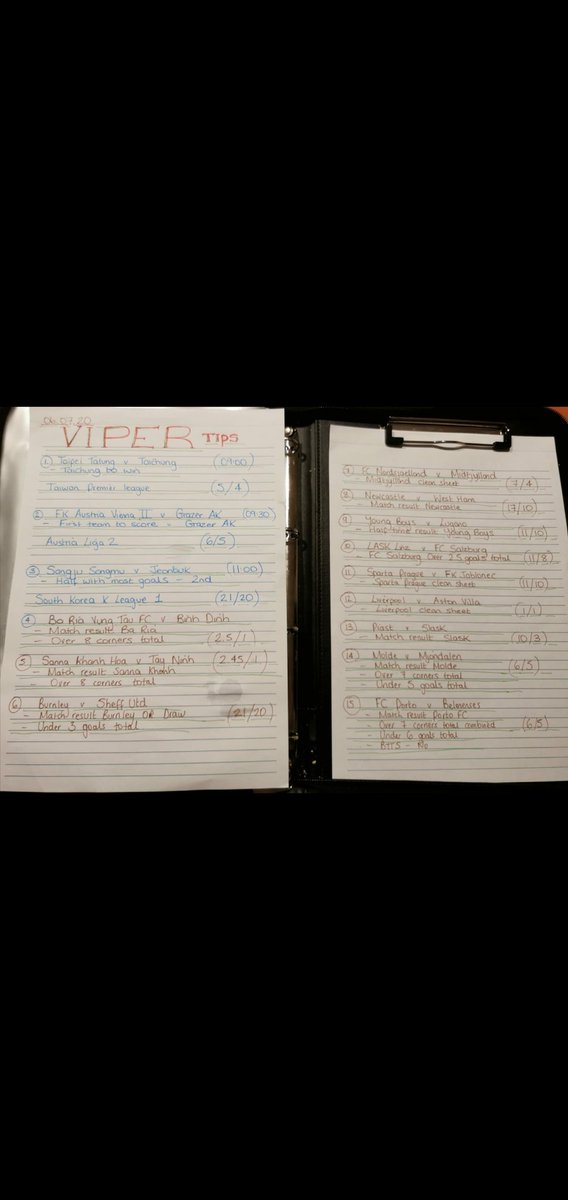 06.07.20
VIPER TIPS
① Taipei Tatung v Taichung (09:00)
- Taichung to win
Taiwan Premier league (5/4)
② FK Austria Vienna II v Grazer AK (09:30)
- First team to score = Grazer AK
Austria Liga 2 (6/5)
③ Sangju Sangmu v Jeonbuk (11:00)
- Half with most goals - 2nd
South Korea K League 1 (21/20)
④ Ba Ria Vung Tau FC v Binh Dinh
- Match result Ba Ria
- Over 8 corners total (2.5/1)
⑤ Sanna Khanh Hoa v Tay Ninh (2.45/1)
- Match result Sanna Khanh
- Over 8 corners total
⑥ Burnley v Sheff Utd
- Match result Burnley OR Draw (21/20)
- Under 3 goals total
⑦ FC Nordsjaelland v Midtjylland
- Midtjylland clean sheet (7/4)
⑧ Newcastle v West Ham
- Match result Newcastle (17/10)
⑨ Young Boys v Lugano
- Half time result Young Boys (11/10)
⑩ LASK Linz v FC Salzburg
- FC Salzburg Over 2.5 goals total (11/8)
⑪ Sparta Prague v FK Jablonec
- Sparta Prague clean sheet (11/10)
⑫ Liverpool v Aston Villa
- Liverpool clean sheet (1/1)
⑬ Piast v Slask
- Match result Slask (10/3)
⑭ Molde v Mjondalen
- Match result Molde (6/5)
- Over 7 corners total
- Under 5 goals total
⑮ FC Porto v Belenenses
- Match result Porto FC
- Over 7 corners total combined (6/5)
- Under 6 goals total
- BTTS - No